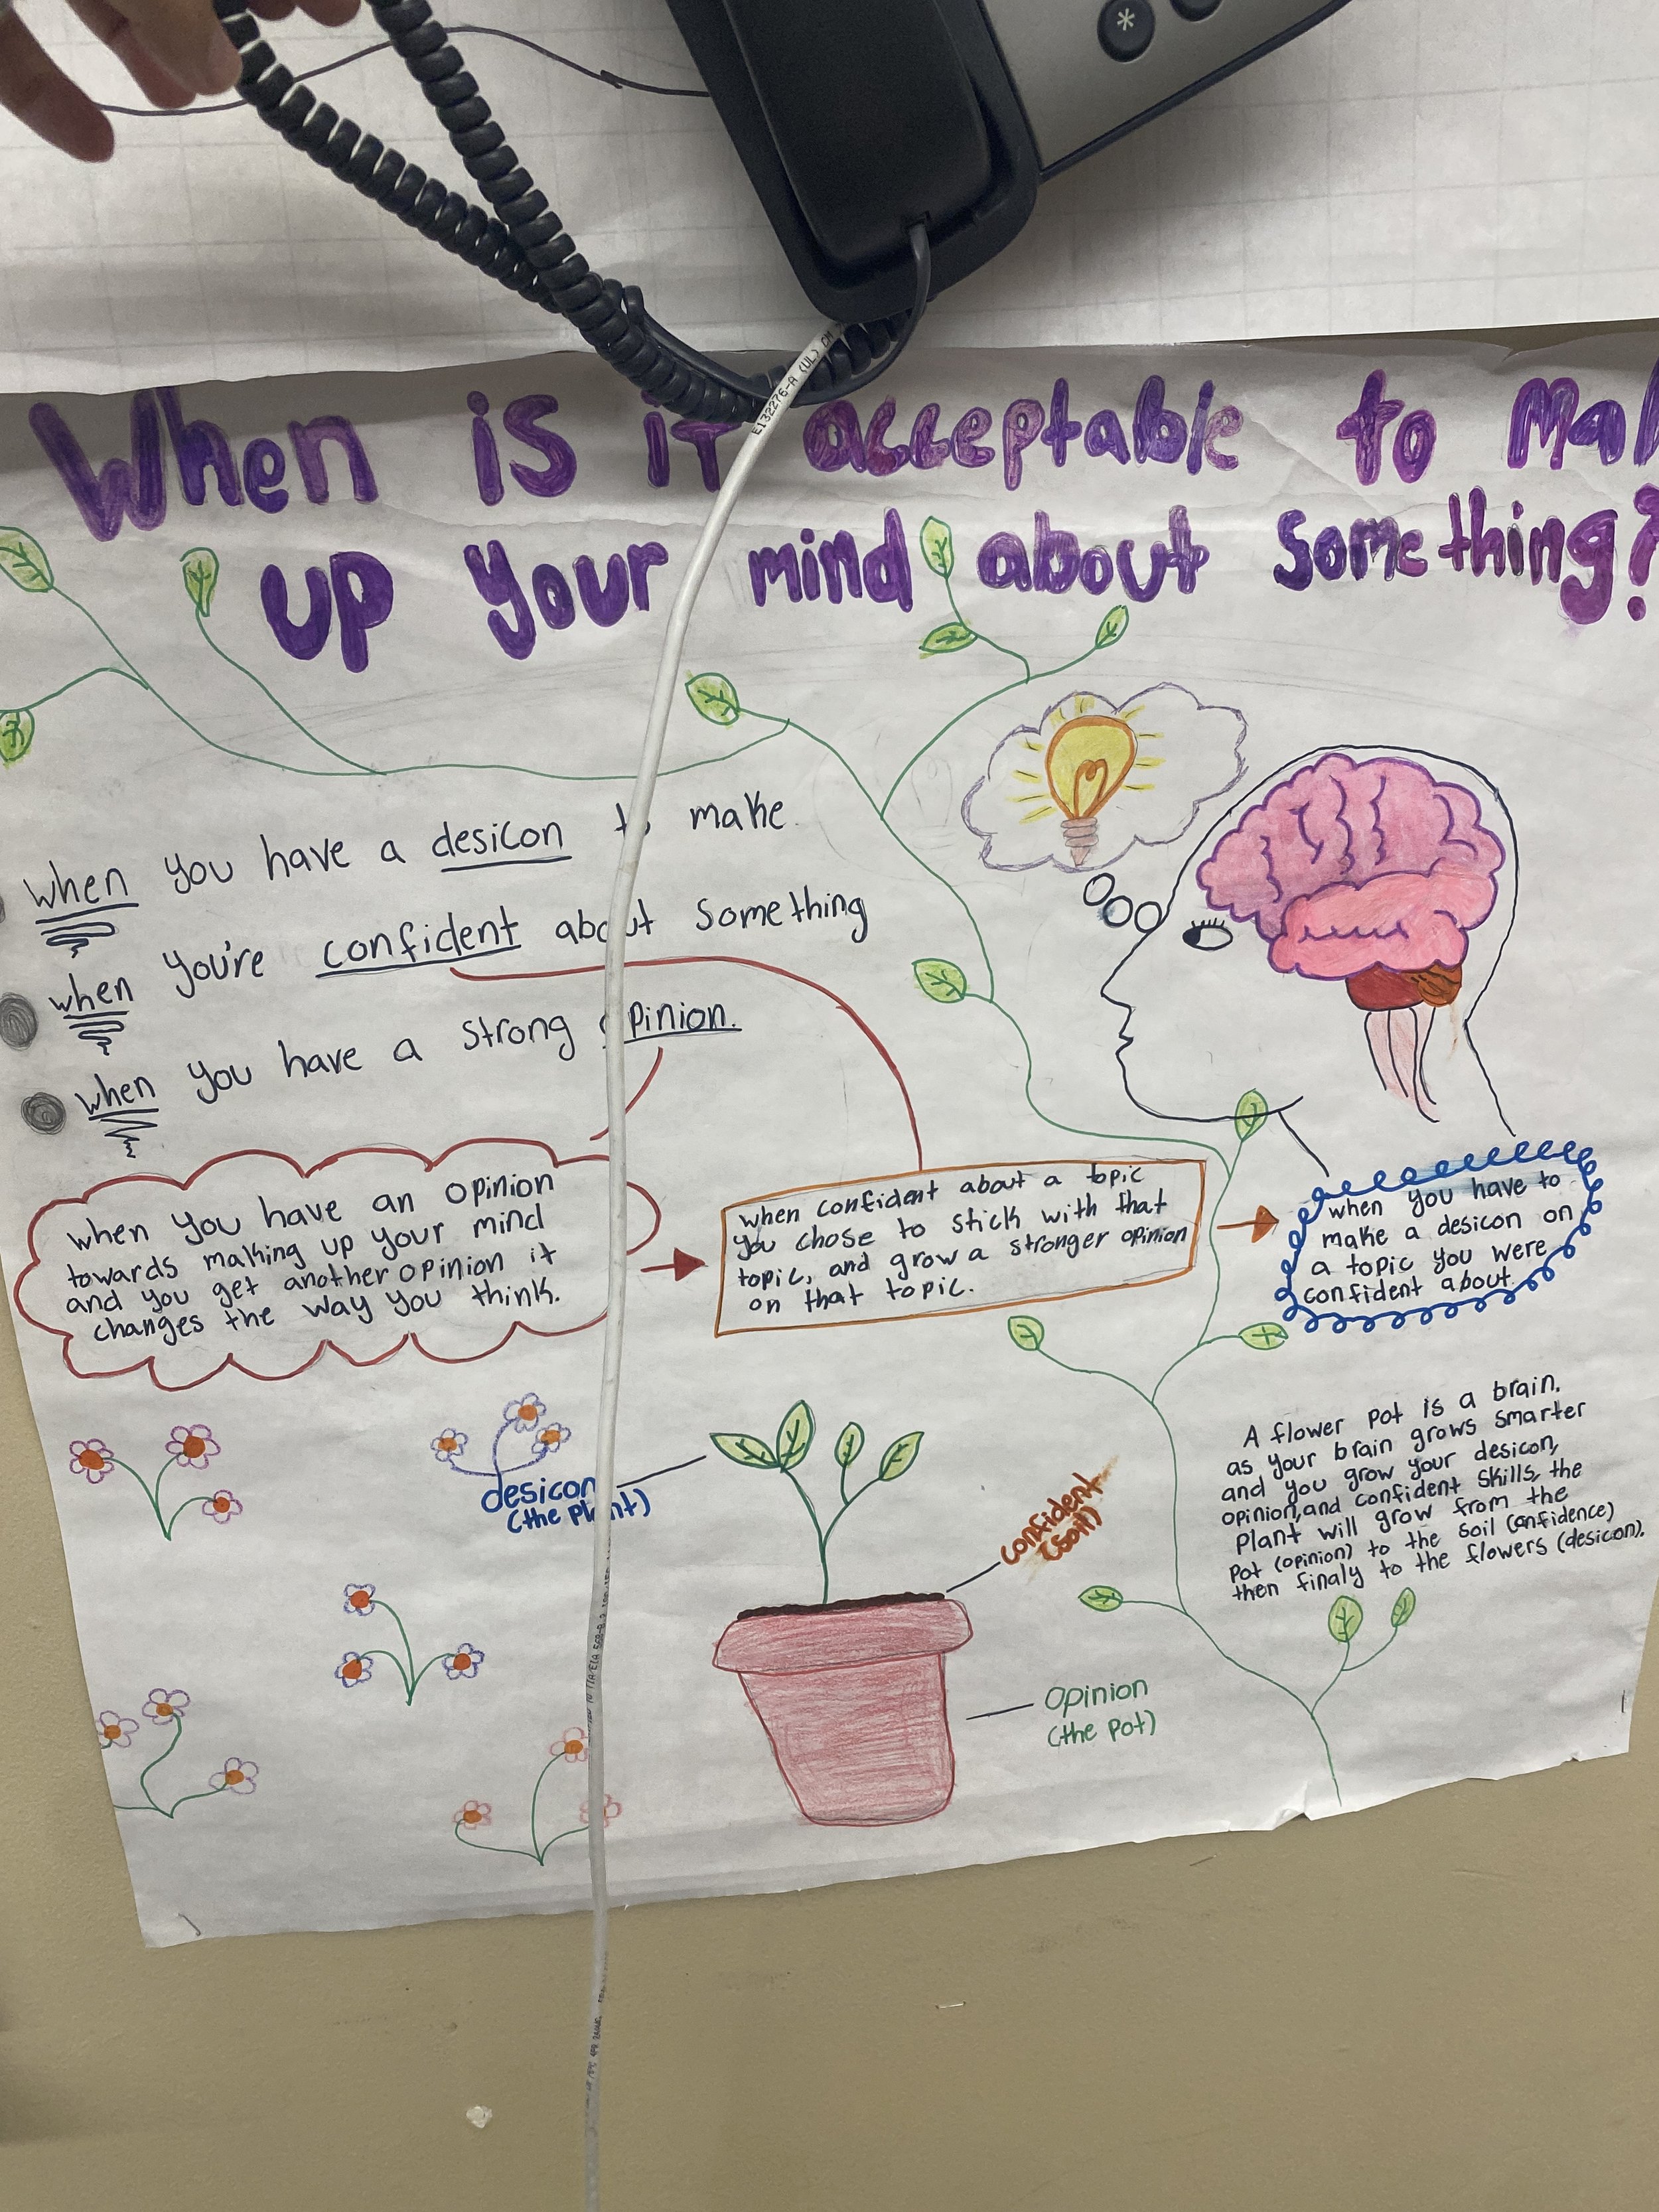 *
E132276-A (UL) CM
When is it acceptable to Mak
up your mind about something?
when you have a desicon to make.
when you're confident about something
when you have a strong opinion.
when you have an opinion
towards making up your mind
and you get another opinion it
changes the way you think.
when confident about a topic
you chose to stick with that
topic, and grow a stronger opinion
on that topic.
when you have to
make a desicon on
a topic you were
confident about.
A flower pot is a brain.
as your brain grows smarter
and you grow your desicon,
opinion, and confident skills, the
plant will grow from the
pot (opinion) to the soil (confidence)
then finaly to the flowers (desicon).
desicon
(the plant)
confident
(soil)
opinion
(the pot)